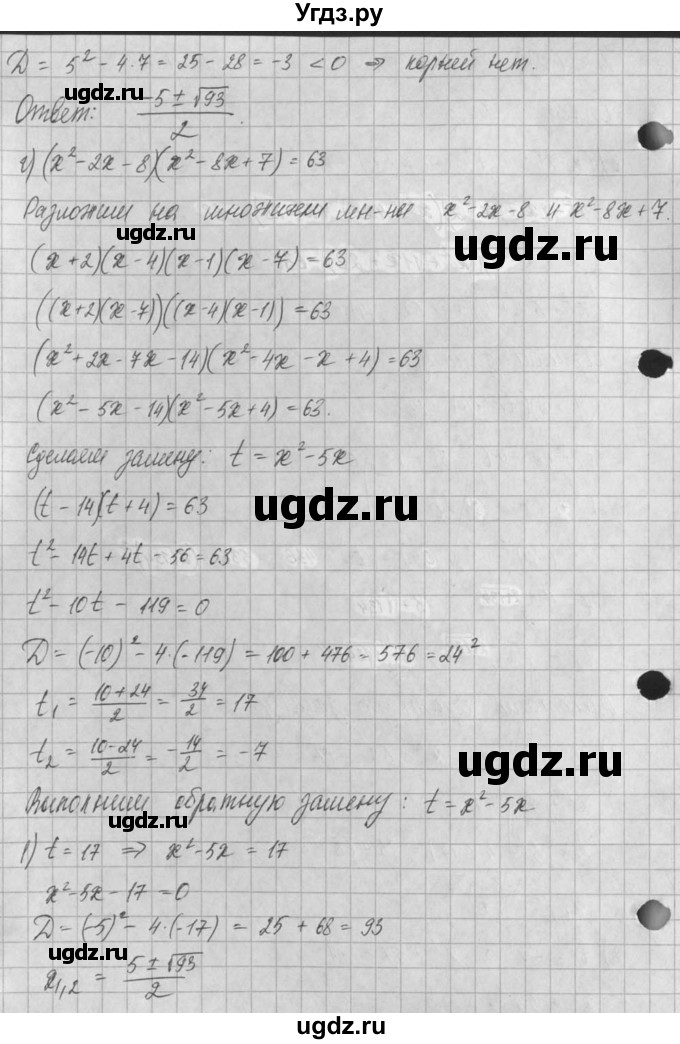 Угдз.ру
D = 5² - 4·7 = 25 - 28 = -3 < 0 ⇒ корней нет.
Ответ: (-5 ± √93)/2.
г) (x² - 2x - 8)(x² - 8x + 7) = 63
Разложим на множители мн-ны x² - 2x - 8 и x² - 8x + 7.
ugdz.ru
(x+2)(x-4)(x-1)(x-7) = 63
((x+2)(x-7))((x-4)(x-1)) = 63
ugdz.ru
(x² + 2x - 7x - 14)(x² - 4x - x + 4) = 63
(x² - 5x - 14)(x² - 5x + 4) = 63.
Сделаем замену: t = x² - 5x
ugdz.ru
(t - 14)(t + 4) = 63
ugdz.ru
t² - 14t + 4t - 56 = 63
t² - 10t - 119 = 0
ugdz.ru
D = (-10)² - 4·(-119) = 100 + 476 = 576 = 24²
t₁ = (10+24)/2 = 34/2 = 17
t₂ = (10-24)/2 = -14/2 = -7
ugdz.ru
Выполним обратную замену: t = x² - 5x
ugdz.ru
1) t = 17 ⇒ x² - 5x = 17
x² - 5x - 17 = 0
D = (-5)² - 4·(-17) = 25 + 68 = 93
ugdz.ru
x₁,₂ = (5 ± √93)/2
ugdz.ru